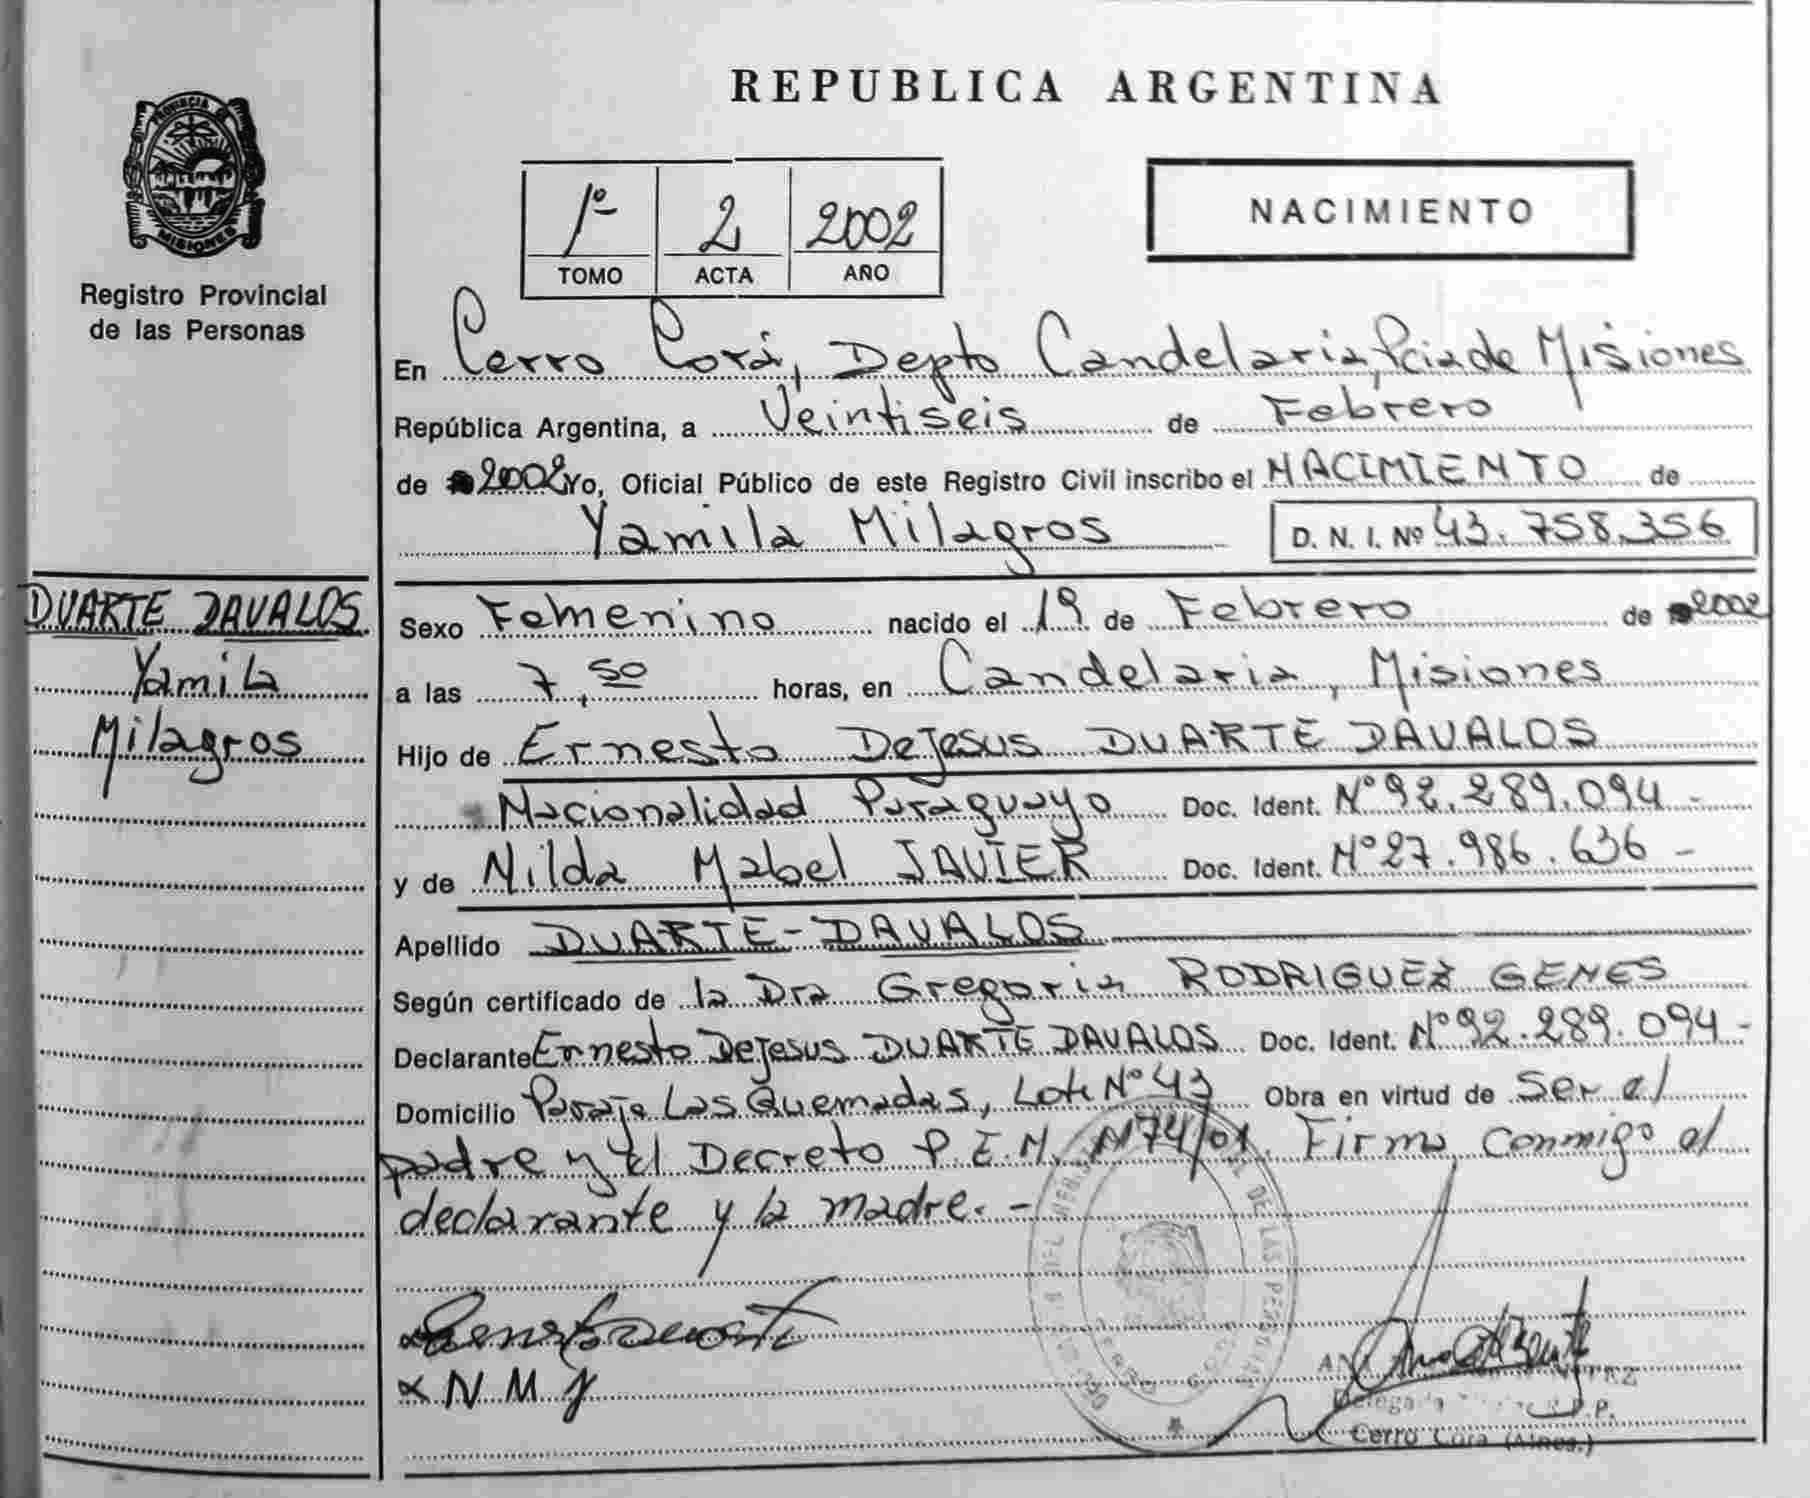 REPUBLICA ARGENTINA
PROVINCIA DE
MISIONES
Registro Provincial
de las Personas
1º 2 2002
TOMO ACTA AÑO
NACIMIENTO
En Cerro Corá, Depto Candelaria, Pcia de Misiones
República Argentina, a Veintiseis de Febrero
de 2002 Yo, Oficial Público de este Registro Civil inscribo el NACIMIENTO de
Yamila Milagros D. N. I. Nº 43.758.356
DUARTE DAVALOS
Yamila
Milagros
Sexo Femenino nacido el 19 de Febrero de 2002
a las 7,50 horas, en Candelaria, Misiones
Hijo de Ernesto DeJesus DUARTE DAVALOS
Nacionalidad Paraguayo Doc. Ident. Nº 92.289.094 -
y de Nilda Mabel JAVIER Doc. Ident. Nº 27.986.636 -
Apellido DUARTE-DAVALOS
Según certificado de la Dra Gregoria RODRIGUEZ GENES
Declarante Ernesto DeJesus DUARTE DAVALOS Doc. Ident. Nº 92.289.094 -
Domicilio Paraje Las Quemadas, Lote Nº 43 Obra en virtud de ser el
padre y el Decreto P.E.N. 1174/01. Firma conmigo el
declarante y la madre. -
N M J
Cerro Cora